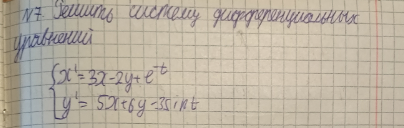 N7. Решить систему дифференциальных
уравнений
{x' = 3x - 2y + e^{-t}
{y' = 5x + 6y - 3sint